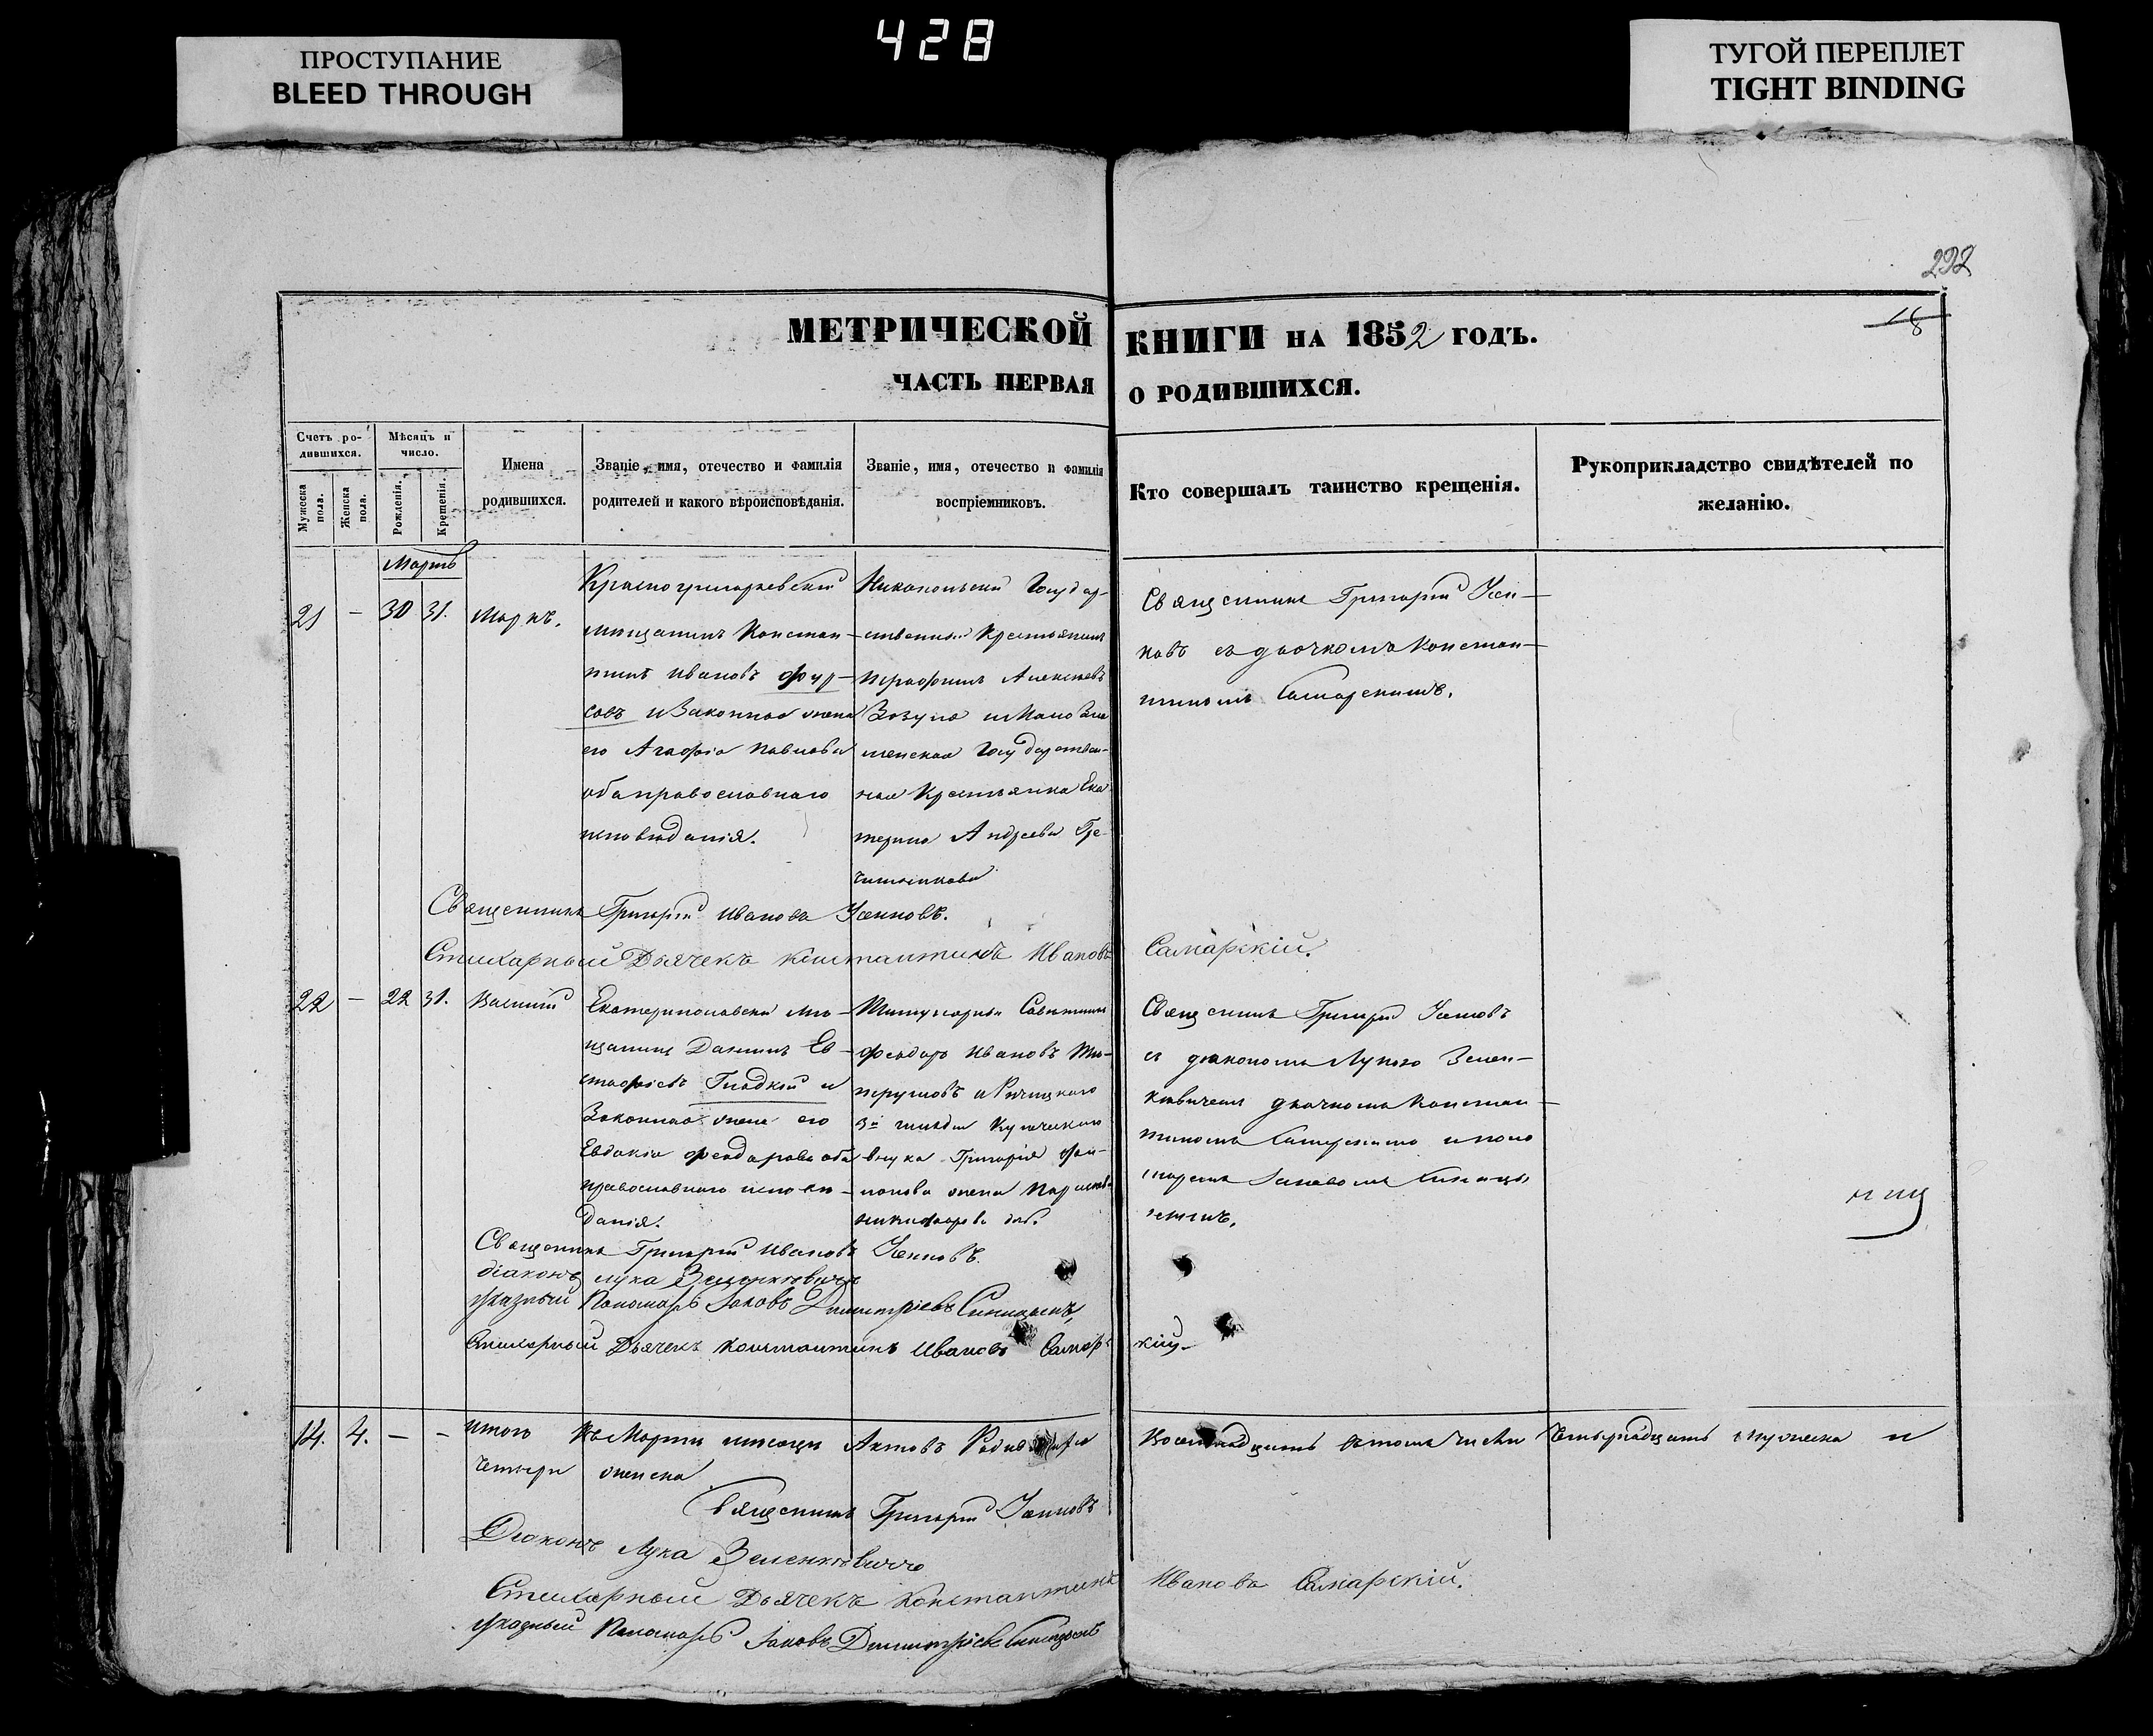 ПРОСТУПАНИЕ
BLEED THROUGH
428
ТУГОЙ ПЕРЕПЛЕТ
TIGHT BINDING
292
18
МЕТРИЧЕСКОЙ КНИГИ НА 1852 ГОДЪ.
ЧАСТЬ ПЕРВАЯ О РОДИВШИХСЯ.
Счетъ ро-
дившихся.
Мужеска
пола.
Женска
пола.
Мѣсяцъ и
число.
Рожденія.
Крещенія.
Имена
родившихся.
Званіе, имя, отечество и фамилія
родителей и какого вѣроисповѣданія.
Званіе, имя, отечество и фамилія
воспріемниковъ.
Кто совершалъ таинство крещенія.
Рукоприкладство свидѣтелей по
желанію.
Мартъ
21 – 30 31. Маркъ.
Красногригорьевскій
мѣщанинъ Констан-
тинъ Ивановъ Фур-
совъ и Законная жена
его Агафія Павлова
оба православнаго
исповѣданія.
Никопольскій Государ-
ственный Крестьянинъ
Трофимъ Алексѣевъ
Зозуля и
Государствен-
ная Крестьянка Ека
терина Андреева Гре-
Священникъ Григорій
съ дьячкомъ Констан-
тиномъ Самарскимъ.
Священникъ Григорій Ивановъ
Стихарный Дьячекъ Константинъ Ивановъ Самарскій.
22 – 22 31. Василій
Екатеринославскій мѣ-
щанинъ Даніилъ Ев-
стафіевъ Гладкій и
Законная жена его
Евдокія Феодорова оба
православнаго исповѣ-
данія.
Титулярный Совѣтникъ
Феодоръ Ивановъ
3й гильдіи Купеческаго
внука Григорія
жена
Священникъ Григорій
съ діакономъ Лукою Зелен-
кевичемъ дьячкомъ Констан-
тиномъ Самарскимъ и поно
маремъ Іаковомъ Синицы
нымъ.
Священникъ Григорій Ивановъ
діаконъ Лука Зеленкевичъ
Указный Пономарь Іаковъ Димитріевъ Синицынъ,
Стихарный Дьячекъ Константинъ Ивановъ Самарскій
14. 4. – – Итого Въ Мартѣ мѣсяцѣ Актовъ Восемнадцать въ томъ числѣ Четырнадцать мужеска и
четыре женска
Священникъ Григорій
Діаконъ Лука Зеленкевичъ
Стихарный Дьячекъ Константинъ Ивановъ Самарскій.
Указный Пономарь Іаковъ Димитріевъ Синицынъ